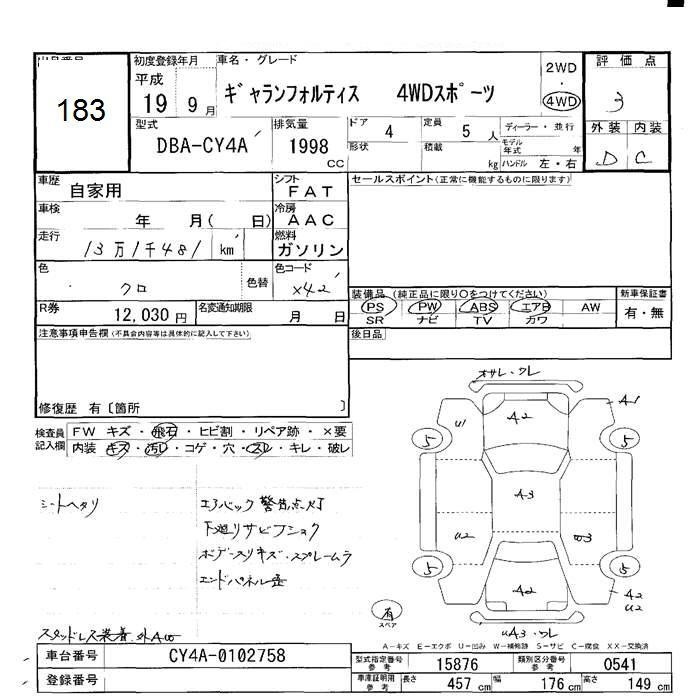 183
初度登録年月 車名・グレード
平成 19 9月 ギャランフォルティス 4WDスポーツ
2WD
4WD
評価点
3
型式 DBA-CY4A
排気量 1998 CC
ドア 4
形状
定員 5 人
積載 kg
ディーラー・並行
モデル年式 年
ハンドル 左・右
外装 内装
D C
車歴 自家用
シフト FAT
セールスポイント(正常に機能するものに限ります)
車検 年 月( 日)
冷房 AAC
走行 13万1千481 km
燃料 ガソリン
色 クロ
色替
色コード X42
装備品(純正品に限り○をつけてください)
PS PW ABS エアB AW
SR ナビ TV カワ
新車保証書
有・無
R券 12,030円
名変通知期限 月 日
後日品
注意事項申告欄(不具合内容等は具体的に記入して下さい)
修復歴 有〔箇所 〕
検査員記入欄
FW キズ・飛石・ヒビ割・リペア跡・×要
内装 キズ・汚レ・コゲ・穴・スレ・キレ・破レ
シートヘタリ
エアバック警告点灯
下廻リサビフショク
ボデースリキズ・スプレームラ
エンドパネル歪
スタッドレス装着
オサレ・ワレ
U1 A2 A1
5 5
A3
U2 B3
5 5
A2 A2
U2
UA3・ワレ
有
スペア
A-キズ E-エクボ U-凹み W-補修跡 S-サビ C-腐食 XX-交換済
車台番号 CY4A-0102758
登録番号
型式指定番号 参考 15876
類別区分番号 参考 0541
車庫証明用 参考 長さ 457 cm 幅 176 cm 高さ 149 cm